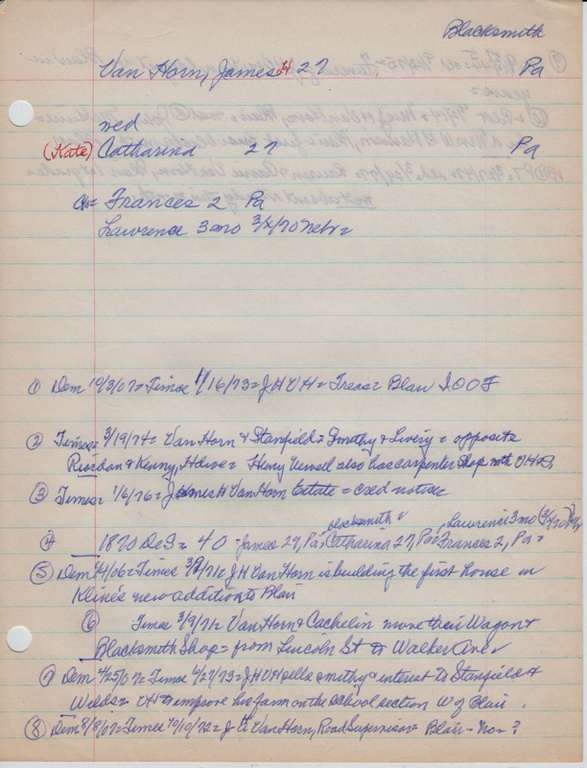 Blacksmith
Van Horn, James H 27 Pa
wed
(Kate) Catharina 27 Pa
Ch= Frances 2 Pa
Lawrence 3 mo 3/4/70 Nebr=
① Dem 10/3/07= Times 1/16/73= J H V H = Treas= Blair I.O.O.F
② Times= 3/19/74= Van Horn & Stanfield= Smithy & Livery = opposite
Riordan & Kenny, Hdwe= Henry also has carpenter shop with VH&S
③ Times= 1/6/76= James H Van Horn Estate = cred notice
blacksmith= Lawrence 3 mo
④ 1870 DeS= 40 - James 27, Pa= Catharina 27, Pa= Frances 2, Pa=
⑤ Dem 4/4/06= Times 3/9/71= J H Van Horn is building the first house in
Kline's new addition to Blair
⑥ Times 3/9/71= Van Horn & Cachelin move their Wagon &
Blacksmith Shop= from Lincoln St to Walker Ave=
⑦ Dem 4/25/07= Times 4/27/73= J H V H sells smithy & interest to Stanfield &
Welds= VH to improve his farm on the school section W of Blair.
⑧ Dem 8/8/07= Times 10/10/72= J H Van Horn, Road Supervisor= Blair - Nov ?